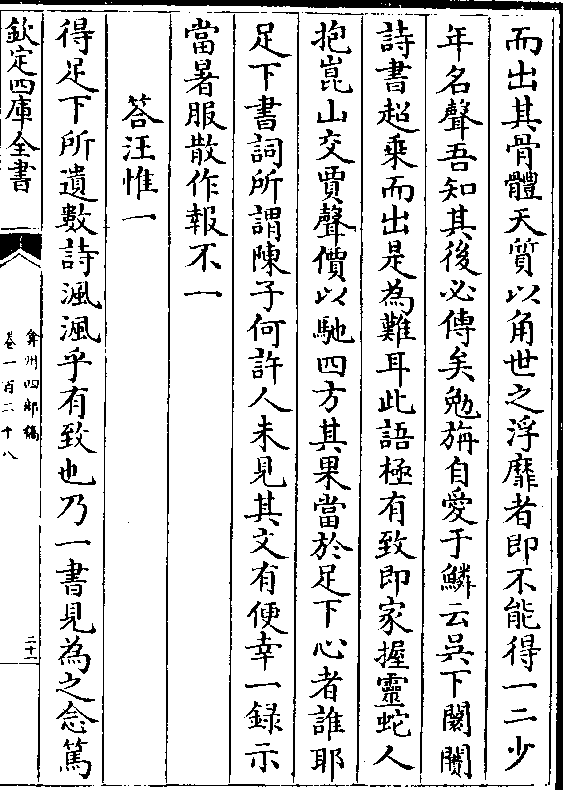 而出其骨體天質以角世之浮靡者即不能得一二少
年名聲吾知其後必傳矣勉旃自愛于鱗云吳下闤闠
詩書超乘而出是為難耳此語極有致即家握靈蛇人
抱崑山交賈聲價以馳四方其果當於足下心者誰耶
足下書詞所謂陳子何許人未見其文有便幸一録示
當暑服散作報不一
答汪惟一
得足下所遺數詩渢渢乎有致也乃一書見為之念篤
欽定四庫全書
弇州四部稿
卷一百二十八
二十一